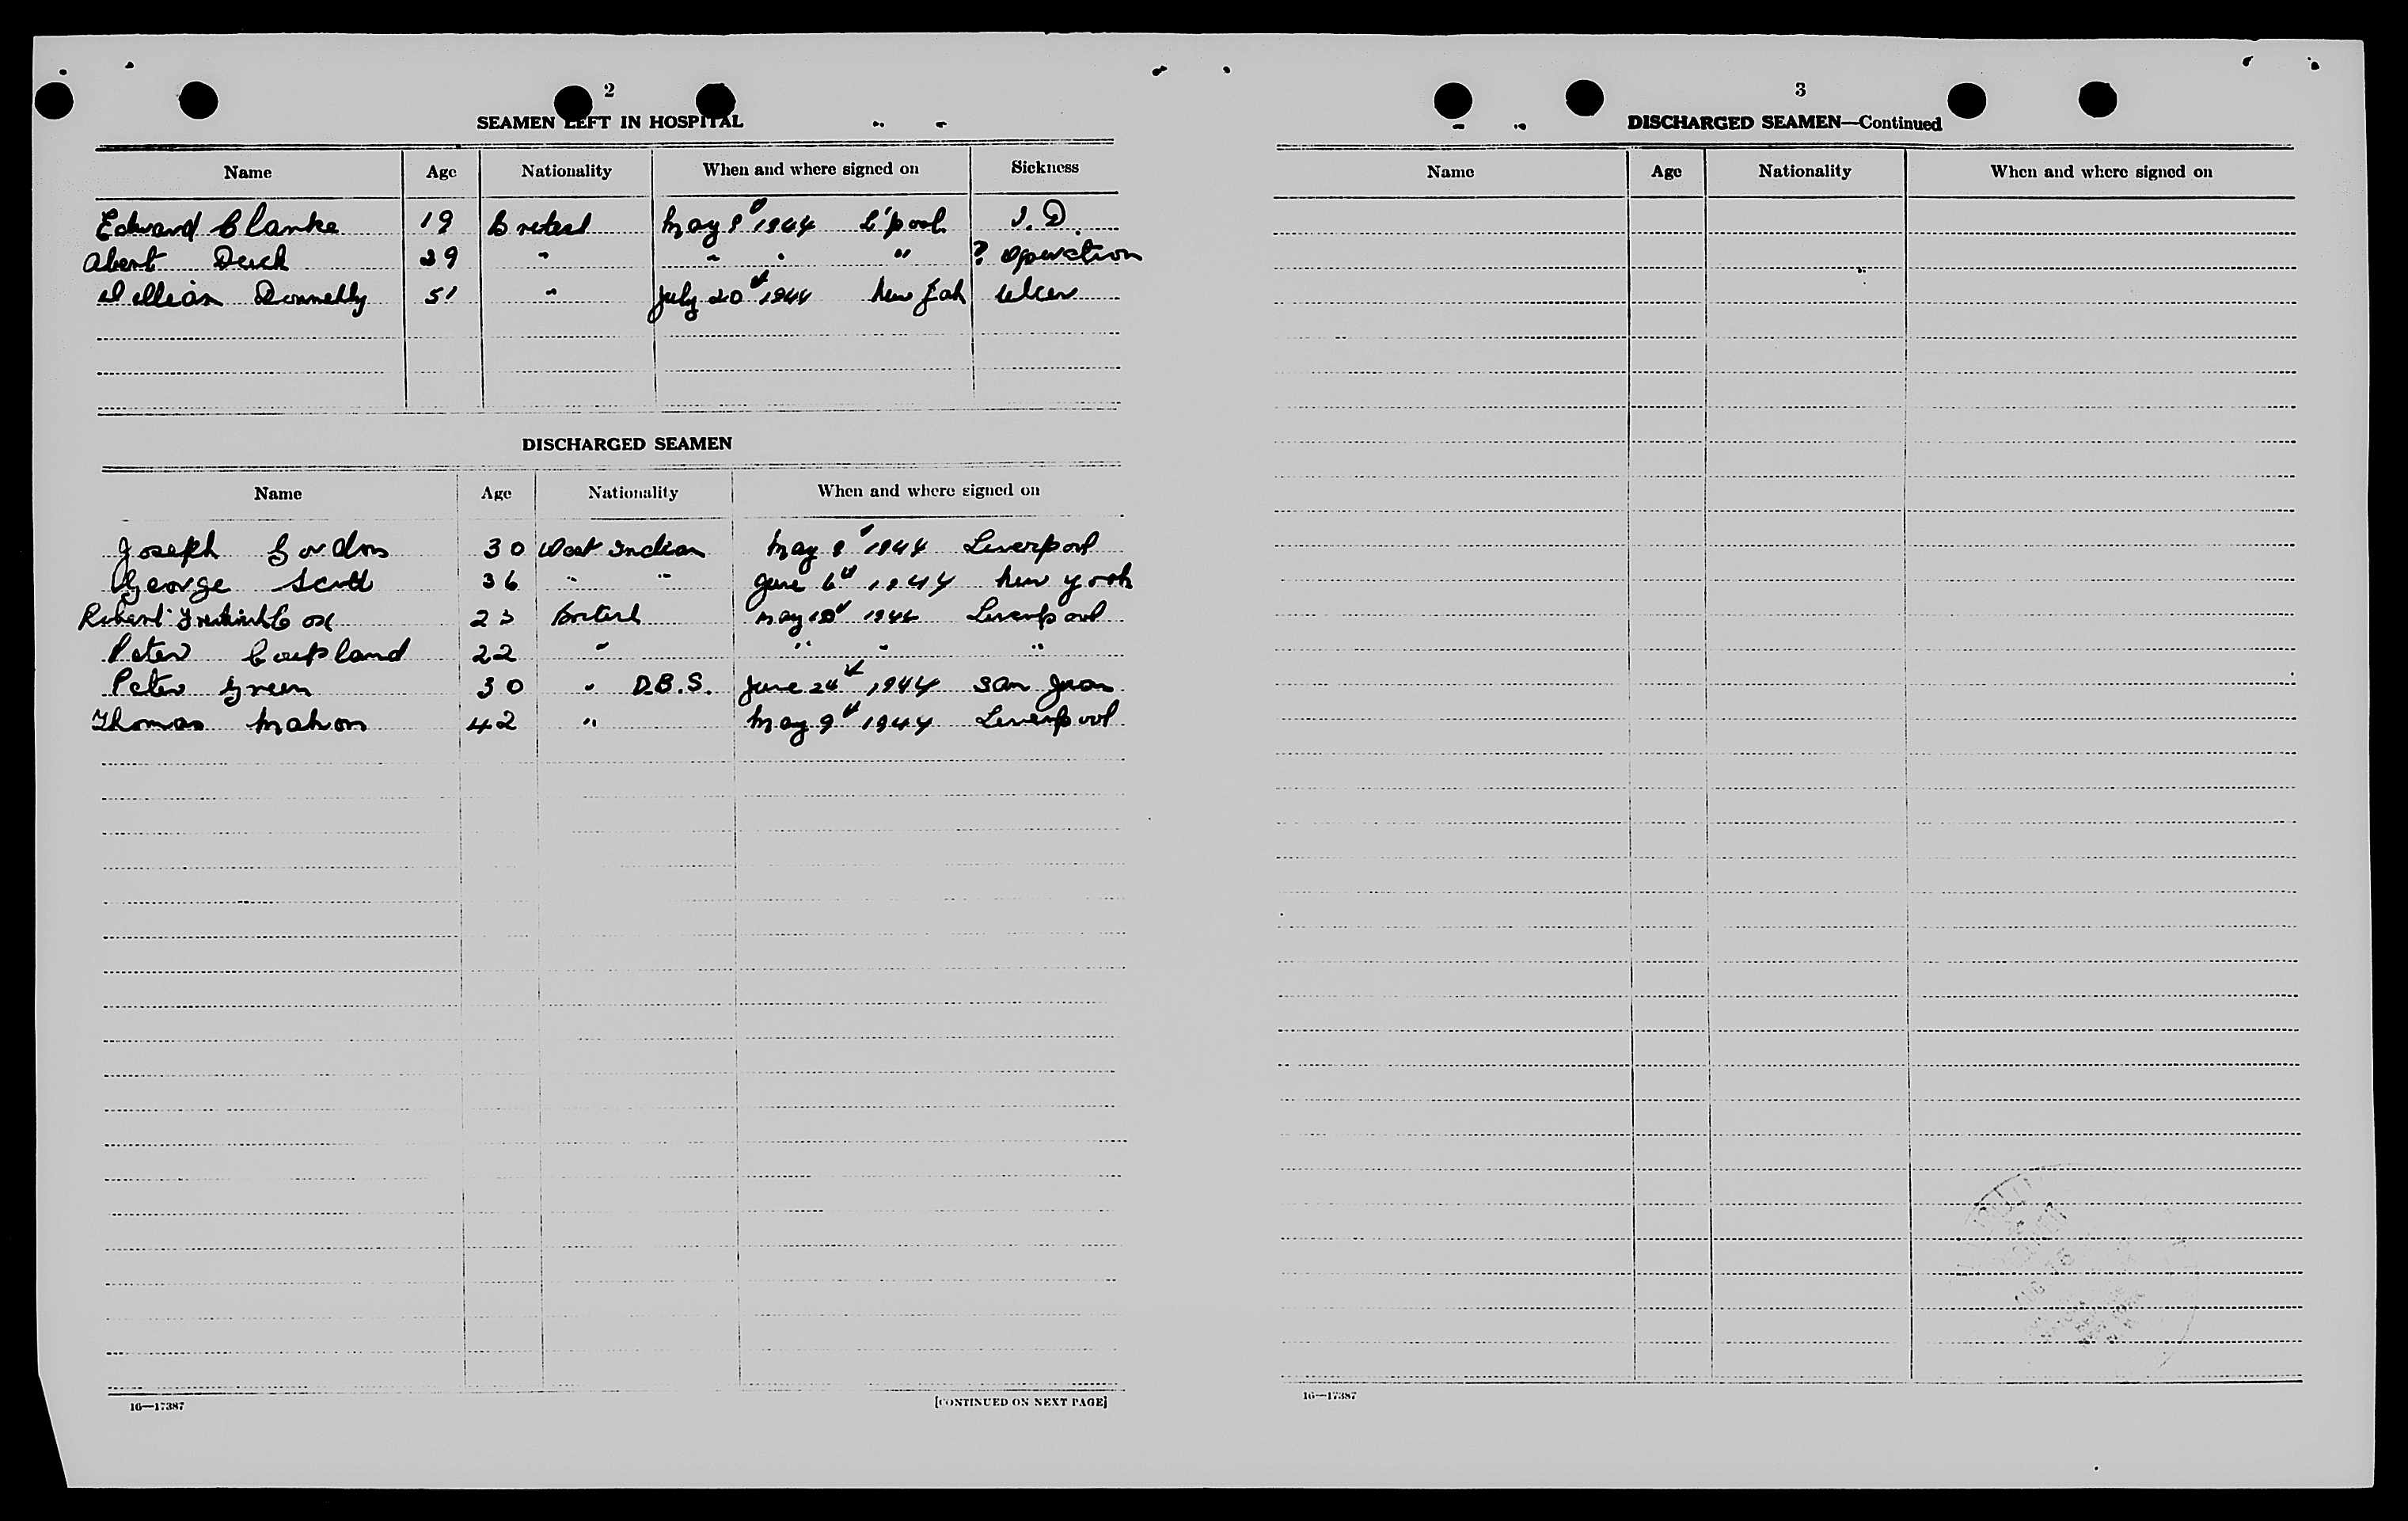 2
SEAMEN LEFT IN HOSPITAL
Name Age Nationality When and where signed on Sickness
Edward Clarke 19 British May 9 1944 L'pool
Abert 29 " " " " ? Operation
William Donnelly 51 " July 20th 1944 New York Ulcer
DISCHARGED SEAMEN
Name Age Nationality When and where signed on
Joseph Gordon 30 West Indian May 9 1944 Liverpool
George Scott 36 " " June 6th 1944 New York
Robert Frederick Cox 23 British May 10th 1944 Liverpool
Peter Coupland 22 " " " "
Peter Green 30 " D.B.S. June 24th 1944 San Juan
Thomas Mahon 42 " May 9th 1944 Liverpool
16—17387 [CONTINUED ON NEXT PAGE]
3
DISCHARGED SEAMEN—Continued
Name Age Nationality When and where signed on
16—17387